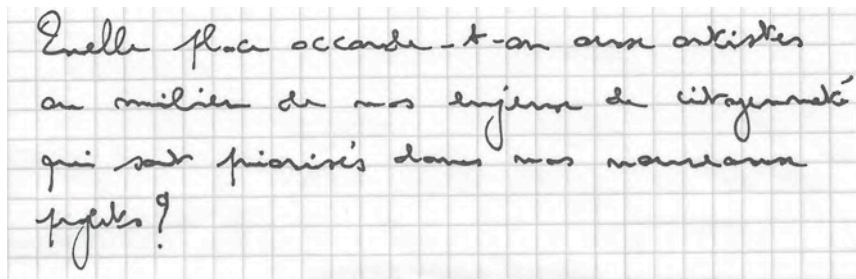 Quelle place accorde-t-on aux artistes
au milieu de nos enjeux de citoyenneté
qui sont priorisés dans nos nouveaux
projets ?